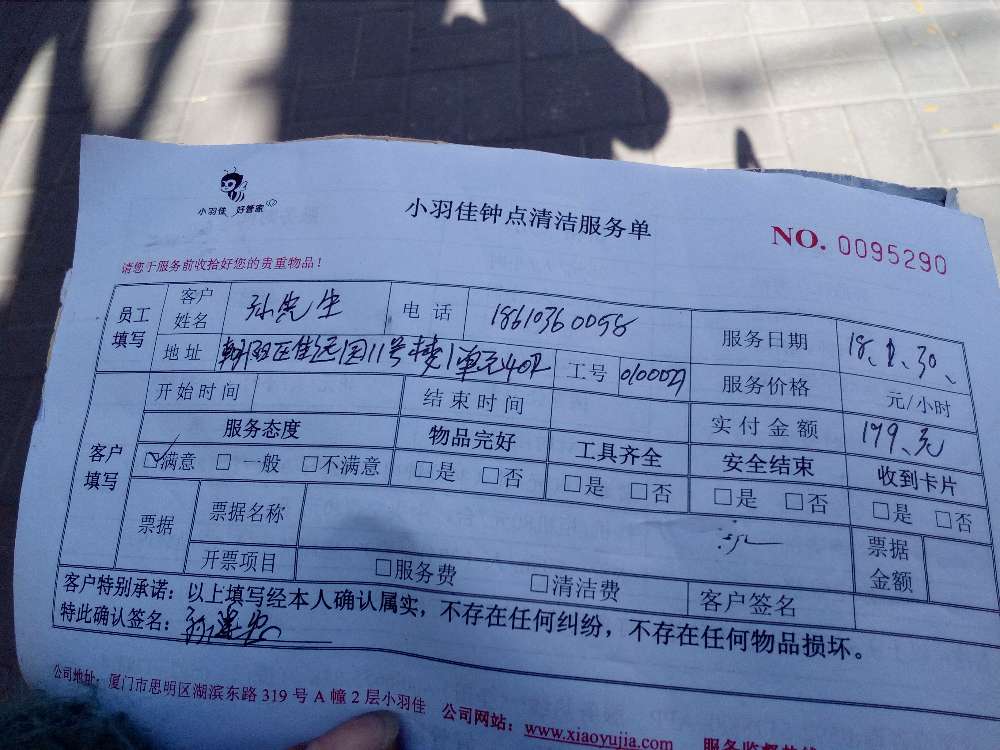 小羽佳 好管家
小羽佳钟点清洁服务单
NO. 0095290
请您于服务前收拾好您的贵重物品！
员工填写 客户姓名 孙先生 电话 18610360058 服务日期 18、2、30、
地址 朝阳区佳运园11号楼1单元402 工号 010002 服务价格 元/小时
客户填写 开始时间 结束时间 实付金额 179、元
服务态度 物品完好 工具齐全 安全结束 收到卡片
☑满意 □一般 □不满意 □是 □否 □是 □否 □是 □否 □是 □否
票据 票据名称 票据金额
开票项目 □服务费 □清洁费 客户签名
客户特别承诺：以上填写经本人确认属实，不存在任何纠纷，不存在任何物品损坏。
特此确认签名：
公司地址：厦门市思明区湖滨东路 319 号 A 幢 2 层小羽佳 公司网站：www.xiaoyujia.com 服务监督热线